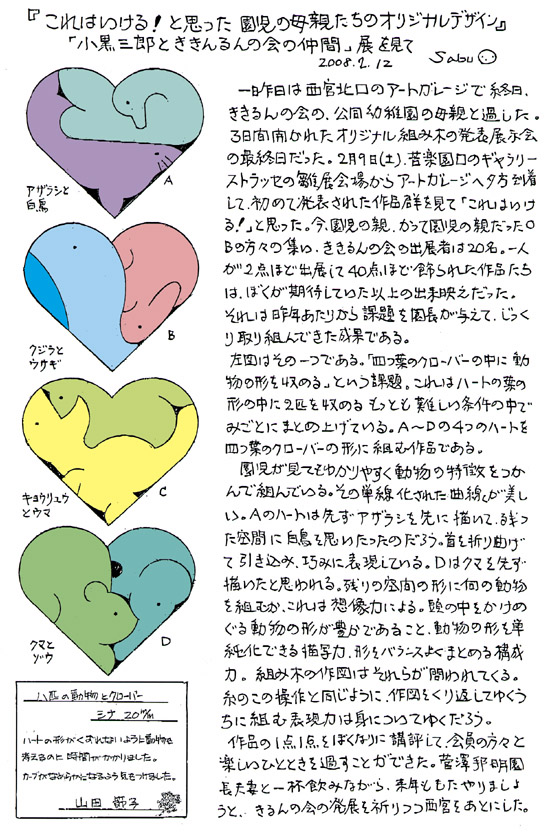 『これはいける!と思った 園児の母親たちのオリジナルデザイン』
「小黒三郎とききんるんの会の仲間」展を見て
2008.2.12 Sabu
一昨日は西宮北口のアートガレージで終日、
ききるんの会の、公同幼稚園の母親と過した。
3日間開かれたオリジナル組み木の発表展示会
の最終日だった。2月9日(土)、苦楽園口のギャラリー
ストラッセの雛展会場からアートガレージへ夕方到着
して、初めて発表された作品群を見て「これはいけ
る!」と思った。今、園児の親、かつて園児の親だったO
Bの方々の集い、ききるんの会の出展者は20名。一人
が2点ほど出展して40点ほど飾られた作品たち
は、ぼくが期待していた以上の出来映えだった。
それは昨年あたりから課題を園長が与えて、じっく
り取り組んできた成果である。
左図はその一つである。「四つ葉のクローバーの中に動
物の形を収める」という課題。これはハートの葉の
形の中に2匹を収めるもっとも難しい条件の中で
みごとにまとの上げている。A〜Dの4つのハートを
四つ葉のクローバーの形に組む作品である。
園児が見てもわかりやすく動物の特徴をつか
んで組んでいる。その単線化された曲線が美し
い。Aのハートは先ずアザラシを先に描いて、残っ
た空間に白鳥を思いたったのだろう。首を折り曲げ
て引き込み、巧みに表現している。Dはクマを先ず
描いたと思われる。残りの空間の形に何の動物
を組むか、これは想像力による。頭の中をかけめ
ぐる動物の形が豊かであること、動物の形を単
純化できる描写力、形をバランスよくまとめる構成
力。組み木の作図はそれらが問われてくる。
糸のこの操作と同じように、作図をくり返してゆくう
ちに組む表現力は身についてゆくだろう。
作品の1点1点をぼくなりに講評して、会員の方々と
楽しいひとときを過すことができた。菅澤邦明園
長夫妻と一杯飲みながら、来年もまたやりましょ
うと、きるんの会の発展を祈りつつ西宮をあとにした。
アザラシと
白鳥
A
クジラと
ウサギ
B
キョウリュウ
とウマ
C
クマと
ゾウ
D
八匹の動物とクローバー
シナ 20㎜
ハートの形がくずれないように動物を
考えるのに時間がかかりました。
カーブがなめらかになるよう気をつけました。
山田 節子